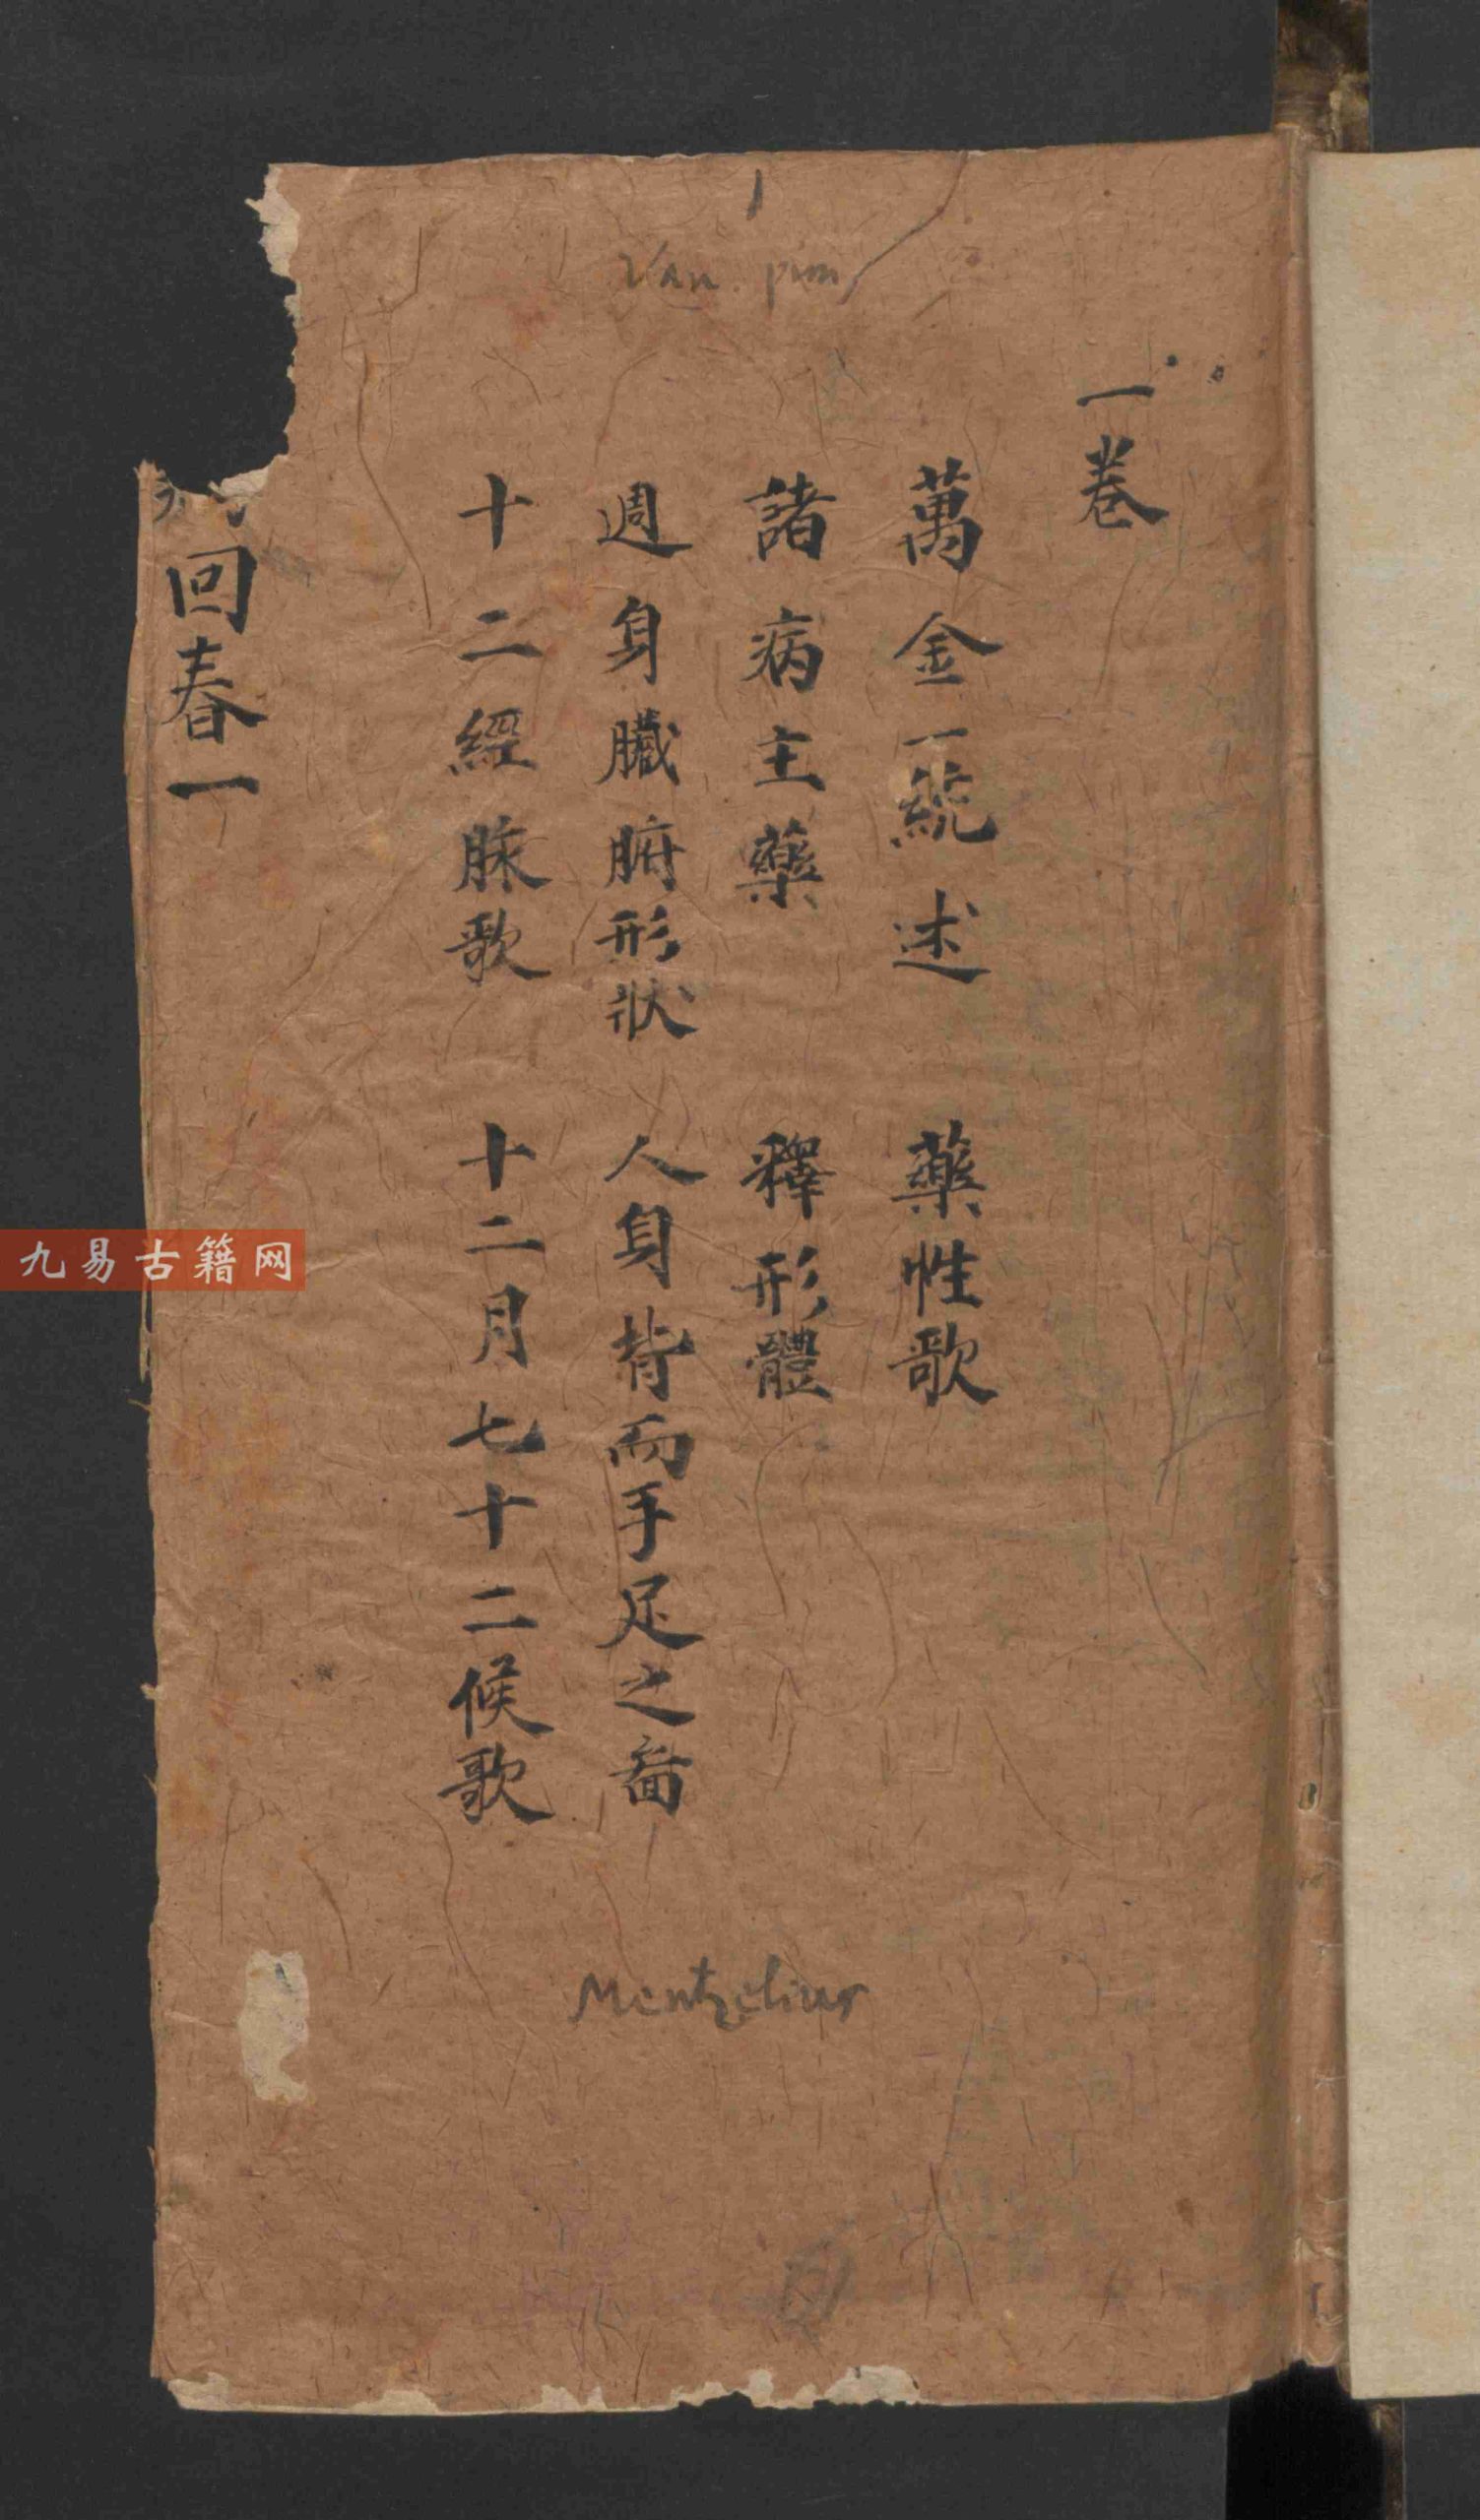 一卷
萬金一統述　藥性歌
諸病主藥　釋形體
週身臟腑形狀　人身背面手足之啚
十二經脉歌　十二月七十二候歌
回春一
Mentzelius
九易古籍网